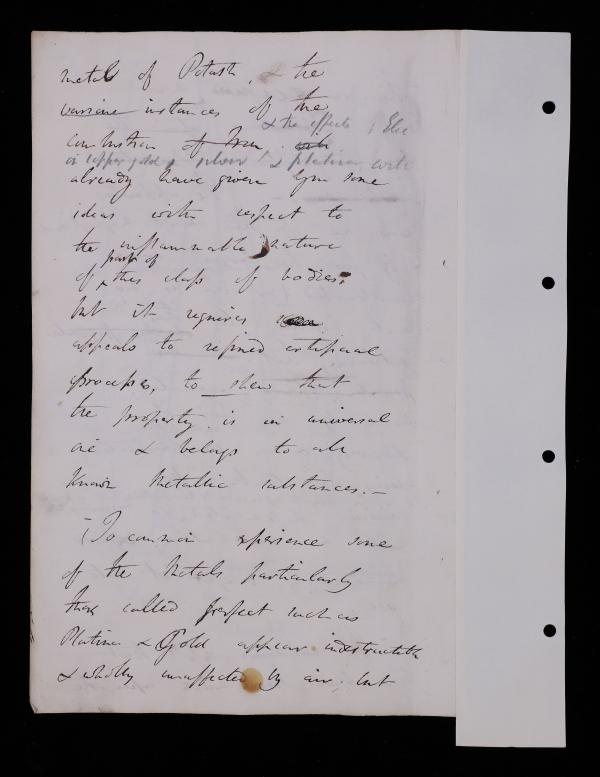 metal of Potash, & the
various instances of the
& the effects of Elec
combustion of Iron. with
on copper gold & silver & platina
already have given you some
ideas with respect to
the inflammable nature
part of
of this class of bodies.
but it requires
appeals to refined artificial
processes, to shew that
the property is in universal
one & belongs to all
known Metallic substances.—
To common experience some
of the Metals particularly
those called perfect such as
Platina & Gold appear indestructible
& wholly unaffected by air, but